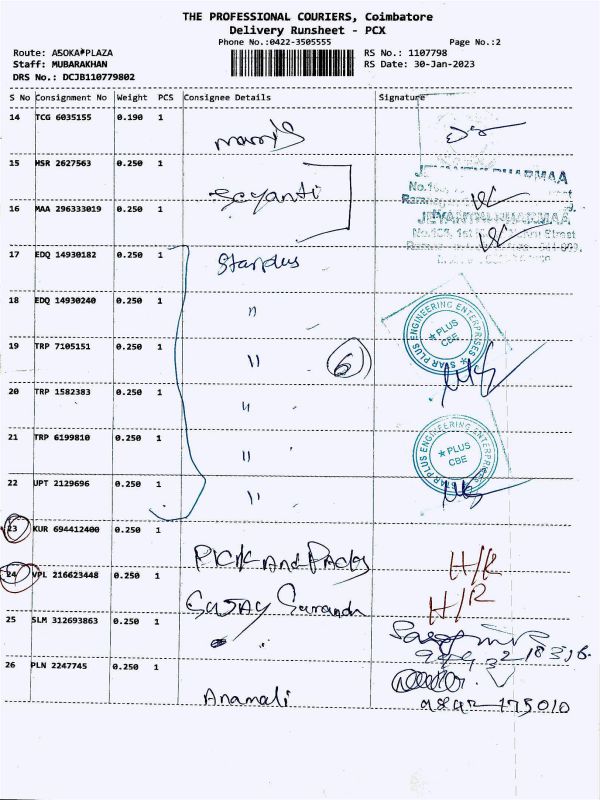 THE PROFESSIONAL COURIERS, Coimbatore
Delivery Runsheet - PCX
Phone No.:0422-3505555 Page No.:2
Route: ASOKA*PLAZA RS No.: 1107798
Staff: MUBARAKHAN RS Date: 30-Jan-2023
DRS No.: DCJB110779802
S No Consignment No Weight PCS Consignee Details Signature
14 TCG 6035155 0.190 1
15 MSR 2627563 0.250 1
JEYANTNI PHARMAA
16 MAA 296333019 0.250 1
JEYANTNI PHARMAA
17 EDQ 14930182 0.250 1 Starplus
18 EDQ 14930240 0.250 1 "
STAR PLUS ENGINEERING ENTERPRISES
* PLUS
CBE
19 TRP 7105151 0.250 1 " 6
20 TRP 1582383 0.250 1 "
21 TRP 6199810 0.250 1 "
STAR PLUS ENGINEERING ENTERPRISES
* PLUS
CBE
22 UPT 2129696 0.250 1 "
23 KUR 694412400 0.250 1 Pick And Packs H/R
24 VPL 216623448 0.250 1 H/R
25 SLM 312693863 0.250 1 "
26 PLN 2247745 0.250 1 Anamali